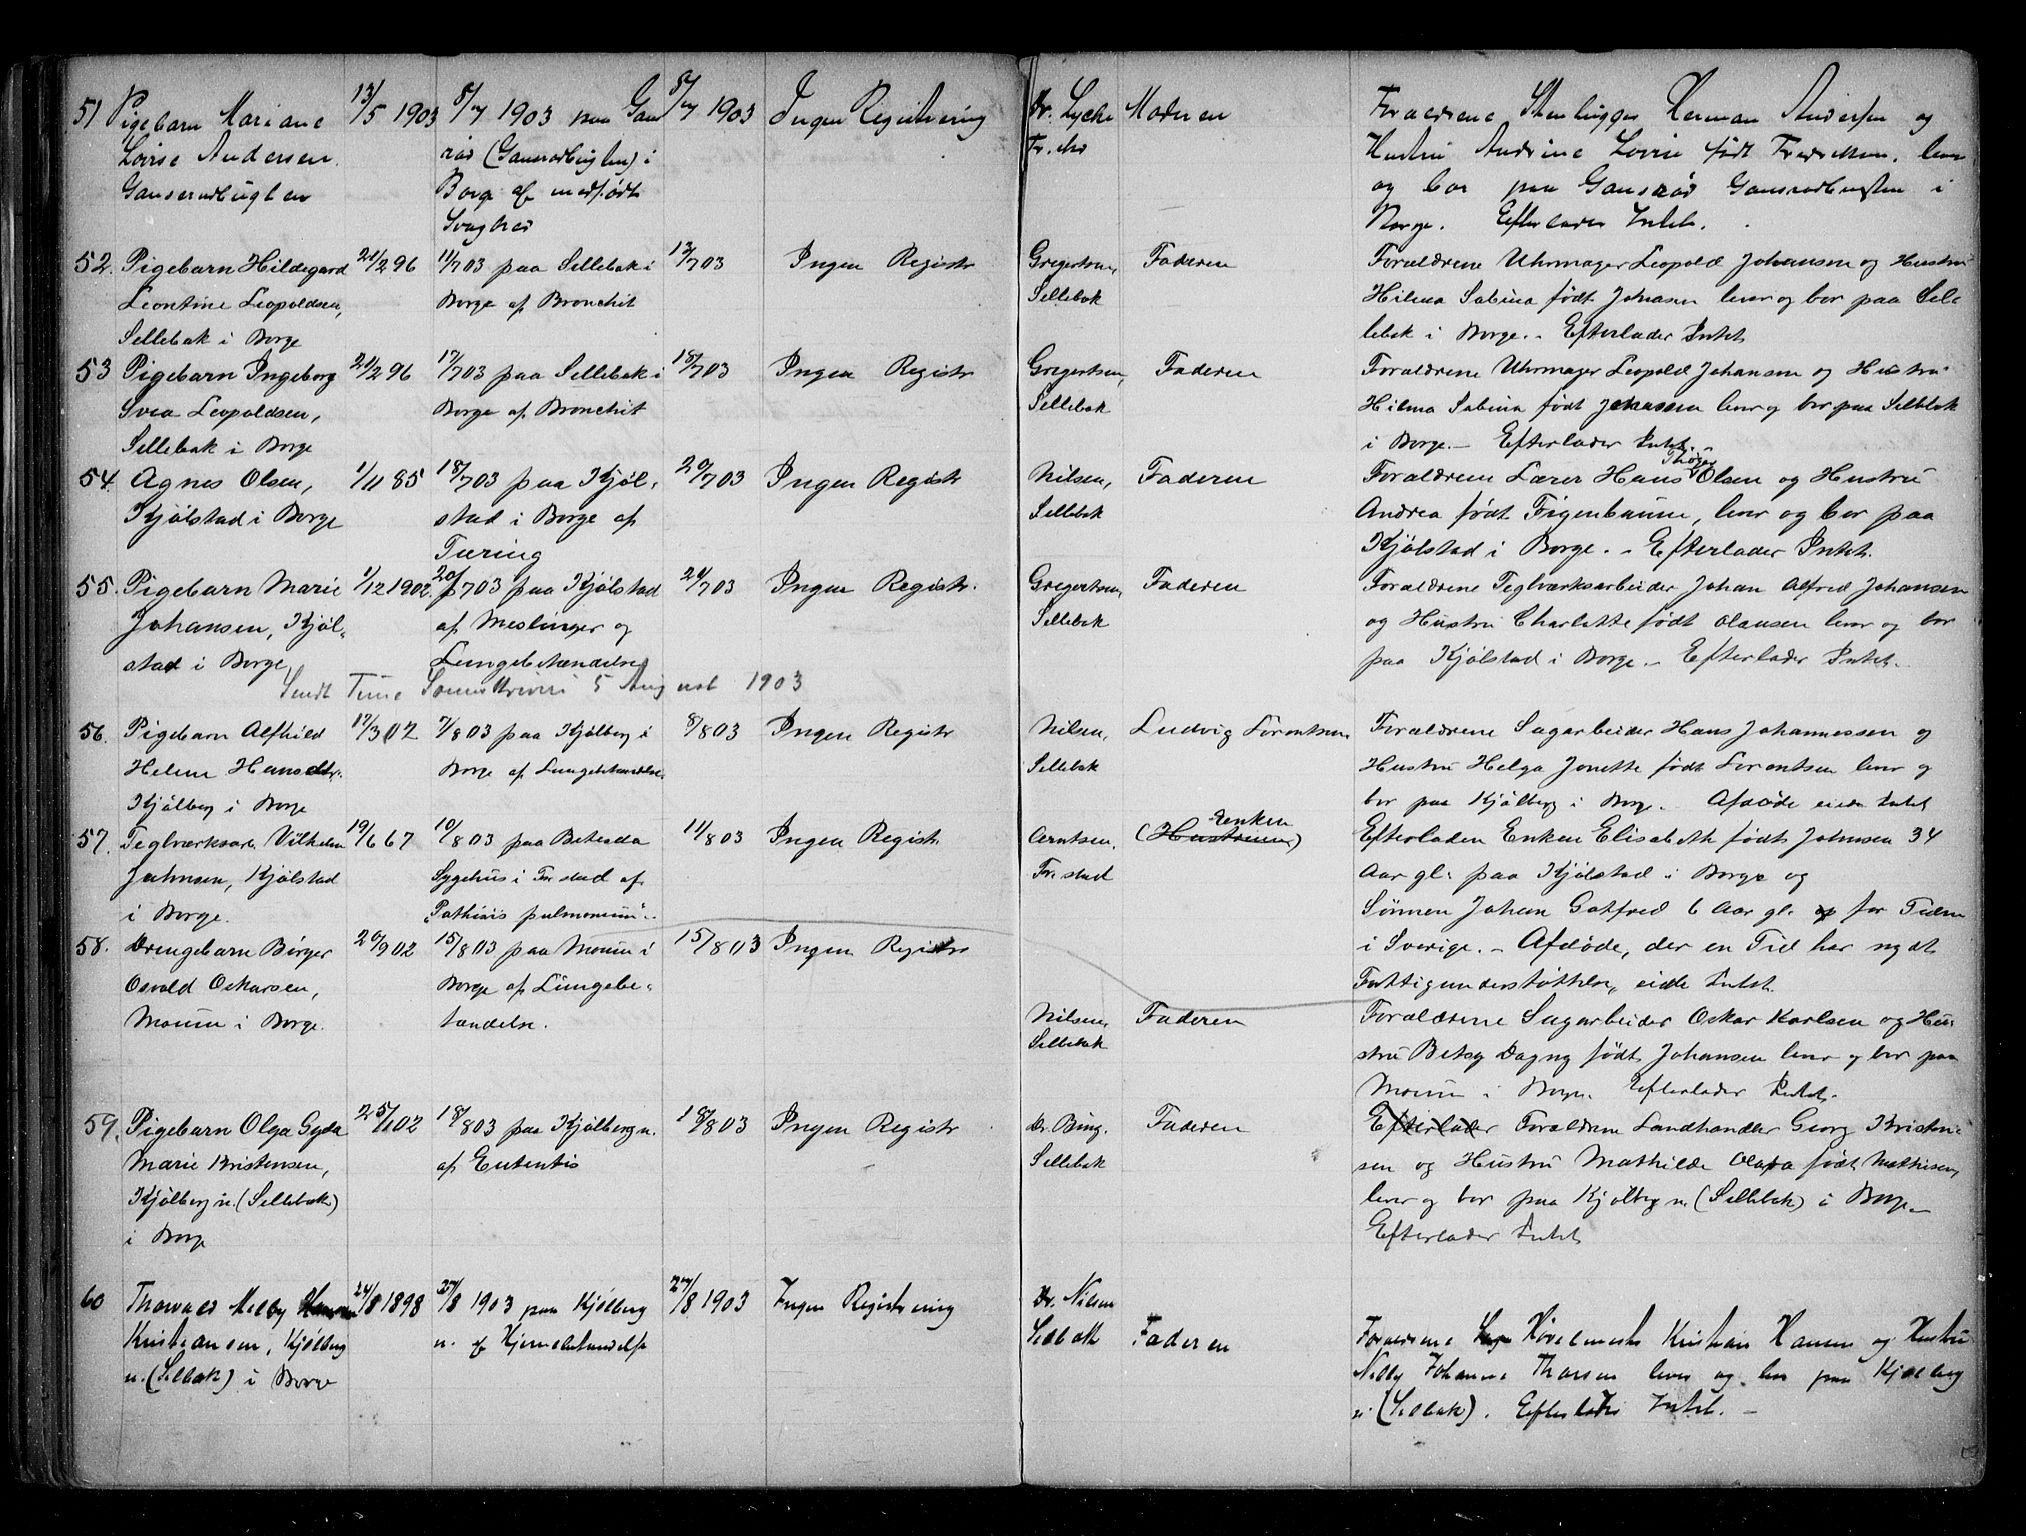 51 Pigebarn Mariane 13/5 1903 8/7 1903 paa Gans 8/7 1903 Ingen Registrering Dr. Lycke Moderen Forældrene Stenhugger Herman Andersen og
Lovise Andersen rød (Gansrødbugten) i Fr.stad Hustru Andrine Lovise født Fredriksen, lever
Gansrødbugten Borge af medfødt og bor paa Gansrød Gansrødbugten i
Svaghed Borge. Efterlader Intet.
52. Pigebarn Hildegard 21/2 96 11/7 03 paa Sellebak i 13/7 03 Ingen Registr Gregertsen, Faderen Forældrene Uhrmager Leopold Johansen og Hustru
Leontine Leopoldsen, Borge af Bronchit Sellebak Hilma Sabina født Johansen lever og bor paa Sel-
Sellebak i Borge lebak i Borge. - Efterlader Intet
53 Pigebarn Ingeborg 21/2 96 17/7 03 paa Sellebak i 18/7 03 Ingen Registr Gregertsen, Faderen Forældrene Uhrmager Leopold Johansen og Hustru
Svea Leopoldsen, Borge af Bronchit Sellebak Hilma Sabina født Johansen lever og bor paa Sellebak
Sellebak i Borge i Borge. - Efterlader Intet.
54. Agnes Olsen, 1/11 85 18/7 03 paa Kjøl- 20/7 03 Ingen Registr Nilsen, Faderen Forældrene Lærer Hans Thøger Olsen og Hustru
Kjølstad i Borge stad i Borge af Sellebak Andrea født Figenbaum, lever og bor paa
Tæring Kjølstad i Borge. - Efterlader Intet.
55. Pigebarn Marie 1/12 1902. 20/7 03 paa Kjølstad 21/7 03 Ingen Registr. Gregertsen, Faderen Forældrene Teglværksarbeider Johan Alfred Johansen
Johansen, Kjøl- af Meslinger og Sellebak og Hustru Charlotte født Olausen lever og bor
stad i Borge Lungebetændelse paa Kjølstad i Borge. - Efterlader Intet.
Sendt Tune Sorenskriveri 5 August 1903
56. Pigebarn Alfhild 17/3 02 7/8 03 paa Kjølberg i 8/8 03 Ingen Registr Nilsen, Ludvig Lorentsen Forældrene Sagarbeider Hans Johannessen og
Helene Hansdtr. Borge af Lungebetændelse. Sellebak Hustru Helga Jonette født Lorentsen lever og
Kjølberg i Borge bor paa Kjølberg i Borge. Afdøde eiede Intet
57. Teglværksarb. Vilhelm 19/6 67 10/8 03 paa Betesda 11/8 03 Ingen Registr. Arntsen, (Hustruen) Enken Efterladen Enken Elisabeth født Johnsen 34
Johnsen, Kjølstad Sygehus i Fr.stad af Fr.stad Aar gl. paa Kjølstad i Borge og
i Borge. Pathisis pulmonum. Sønnen Johan Gotfred 6 Aar gl. for Tiden
i Sverige. - Afdøde, der en Tid har nydt
Fattigunderstøttelse, eiede Intet.
58. Drengebarn Børger 20/9 02 15/8 03 paa Moum i 15/8 03 Ingen Registr
Osvald Oskarsen, Borge af Lungebe-
Moum i Borge. tændelse. Nilsen, Faderen Forældrene Sagarbeider Oskar Karlsen og Hu-
Sellebak stru Betsy Dagny født Johansen lever og bor paa
Moum i Borge. Efterlader Intet.
59. Pigebarn Olga Gyda 25/1 02 18/8 03 paa Kjølberg n. 18/8 03 Ingen Registr Dr. Bing. Faderen Efterlader Forældrene Landhandler Georg Kristen-
Marie Kristensen, af Eutentis Sellebak sen og Hustru Mathilde Olava født Mathisen,
Kjølberg n. (Sellebak) lever og bor paa Kjølberg n. (Sellebak) i Borge.
i Borge Efterlader Intet
60 Thorvald Melby Hansen 24/8 1898 27/8 1903 paa Kjølberg 27/8 1903 Ingen Registrering Dr. Nilsen
Kristiansen, Kjølberg n. af Hjernebetændelse Selbak Faderen Forældrene Høvelmester Kristian Hansen og Hustru
n. (Selbak) i Borge Nelly Johanne Thorsen lever og bor paa Kjølberg
n. (Selbak). Efterlader Intet. -